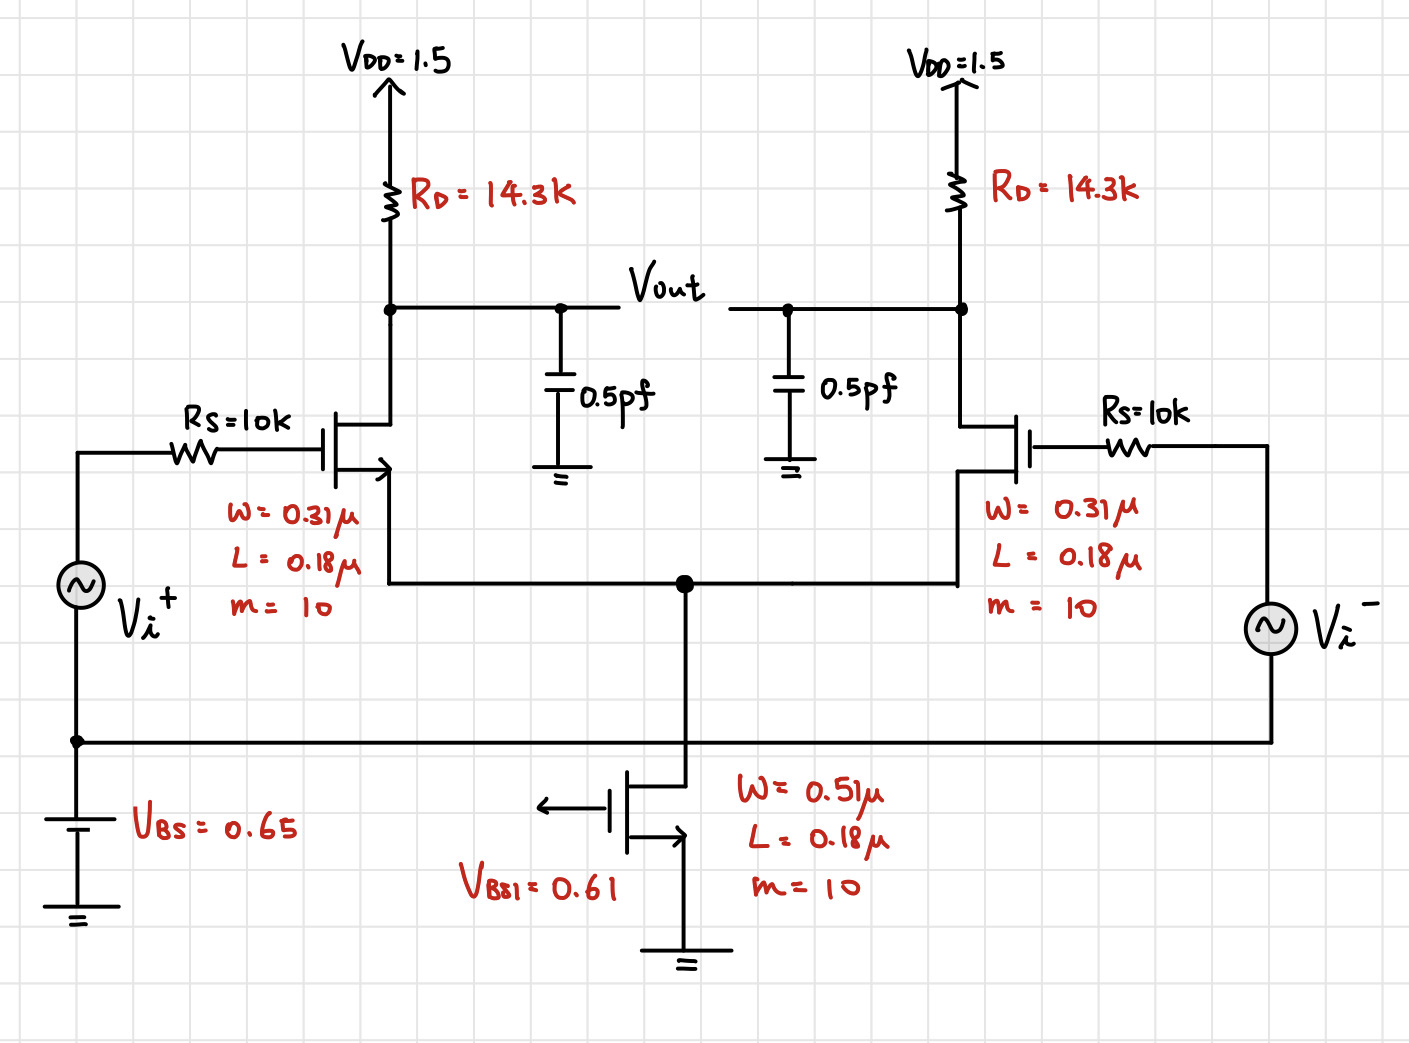 V_DD = 1.5
V_DD = 1.5
R_D = 14.3k
R_D = 14.3k
Vout
0.5pf
0.5pf
R_S = 10k
R_S = 10k
W = 0.31μ
L = 0.18μ
m = 10
W = 0.31μ
L = 0.18μ
m = 10
V_i^+
V_i^-
V_BS = 0.65
W = 0.51μ
L = 0.18μ
m = 10
V_BS1 = 0.61